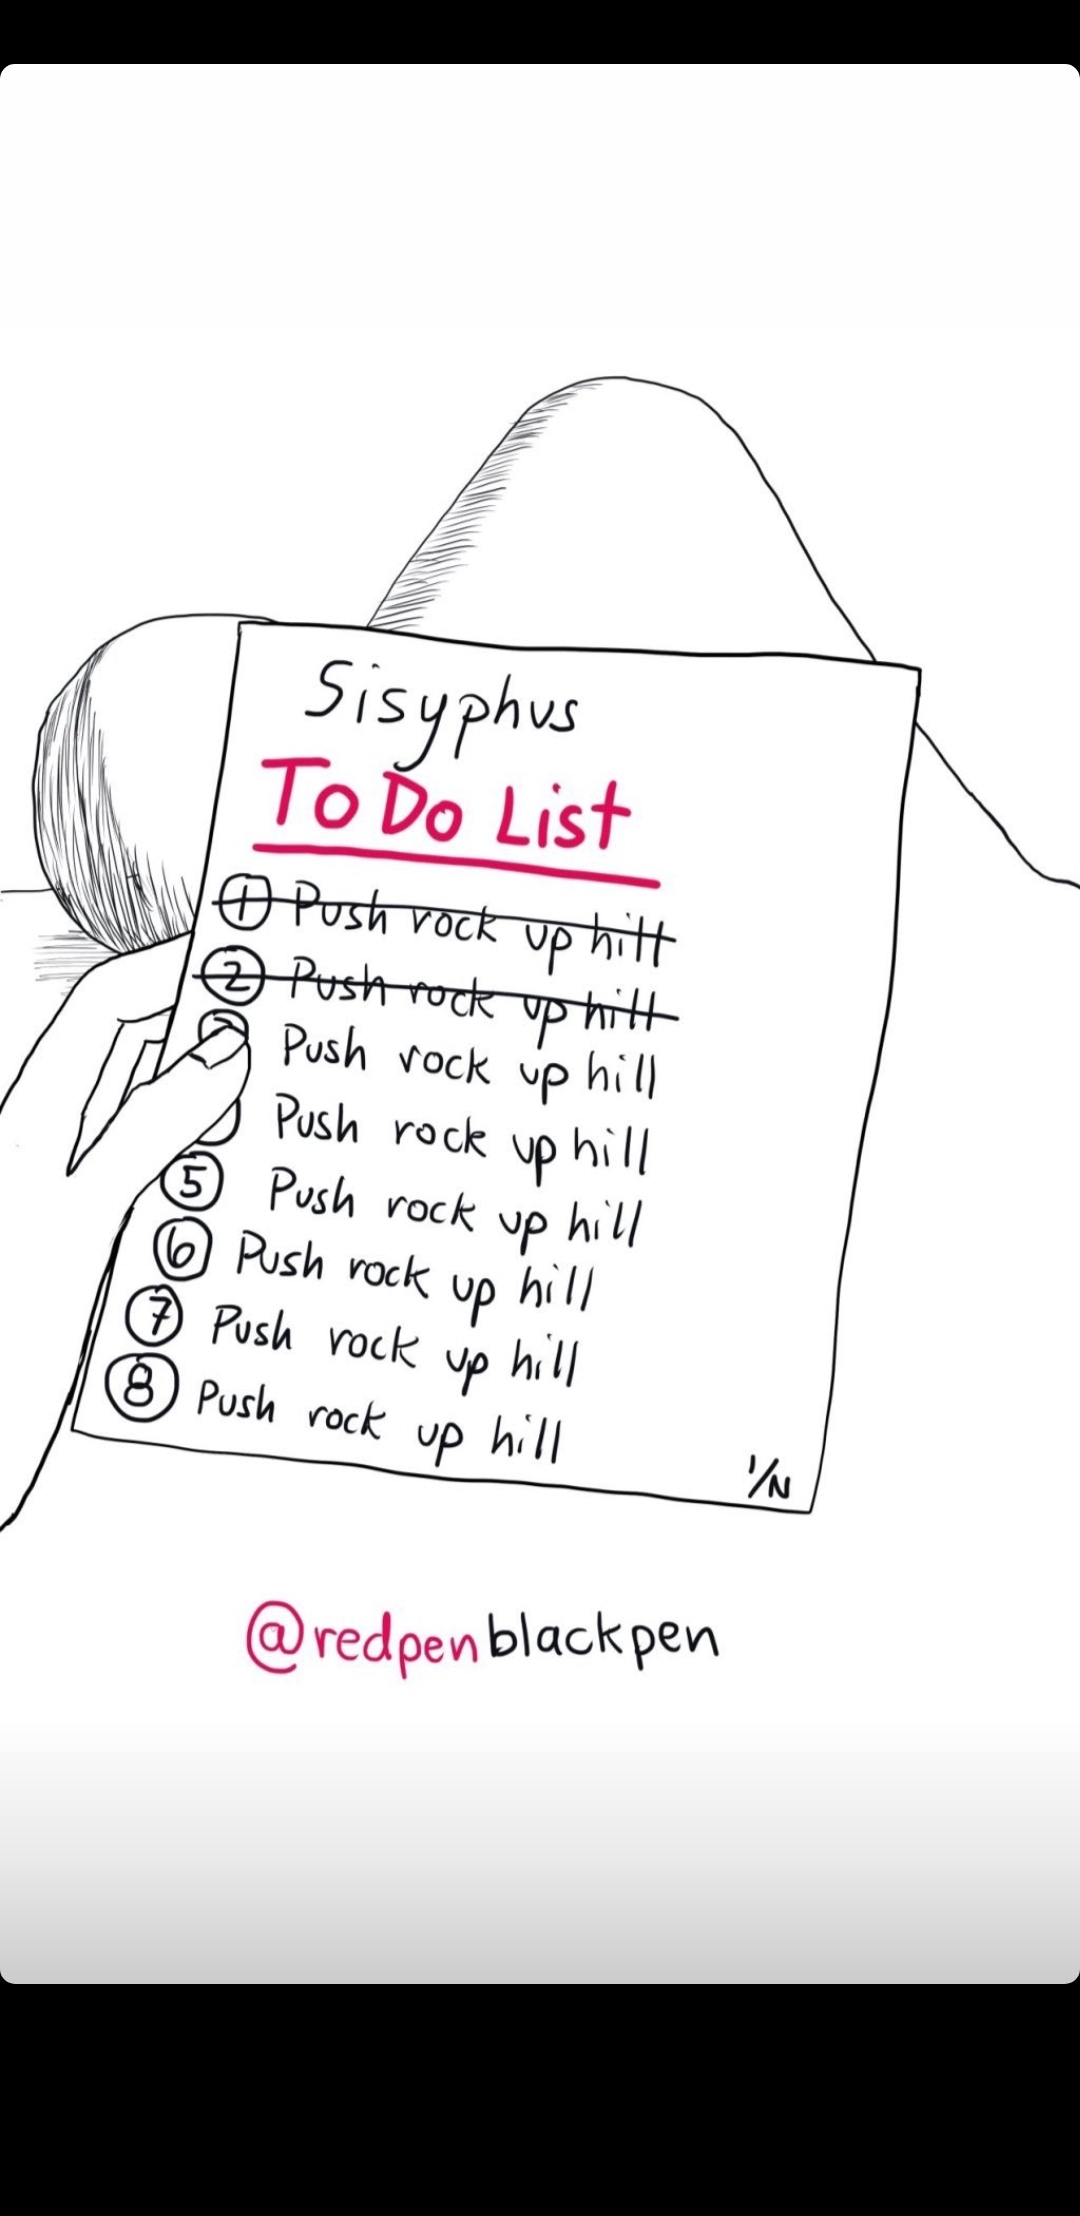 Sisyphus
To Do List
① Push rock up hill
② Push rock up hill
Push rock up hill
Push rock up hill
⑤ Push rock up hill
⑥ Push rock up hill
⑦ Push rock up hill
⑧ Push rock up hill
1/N
@redpenblackpen